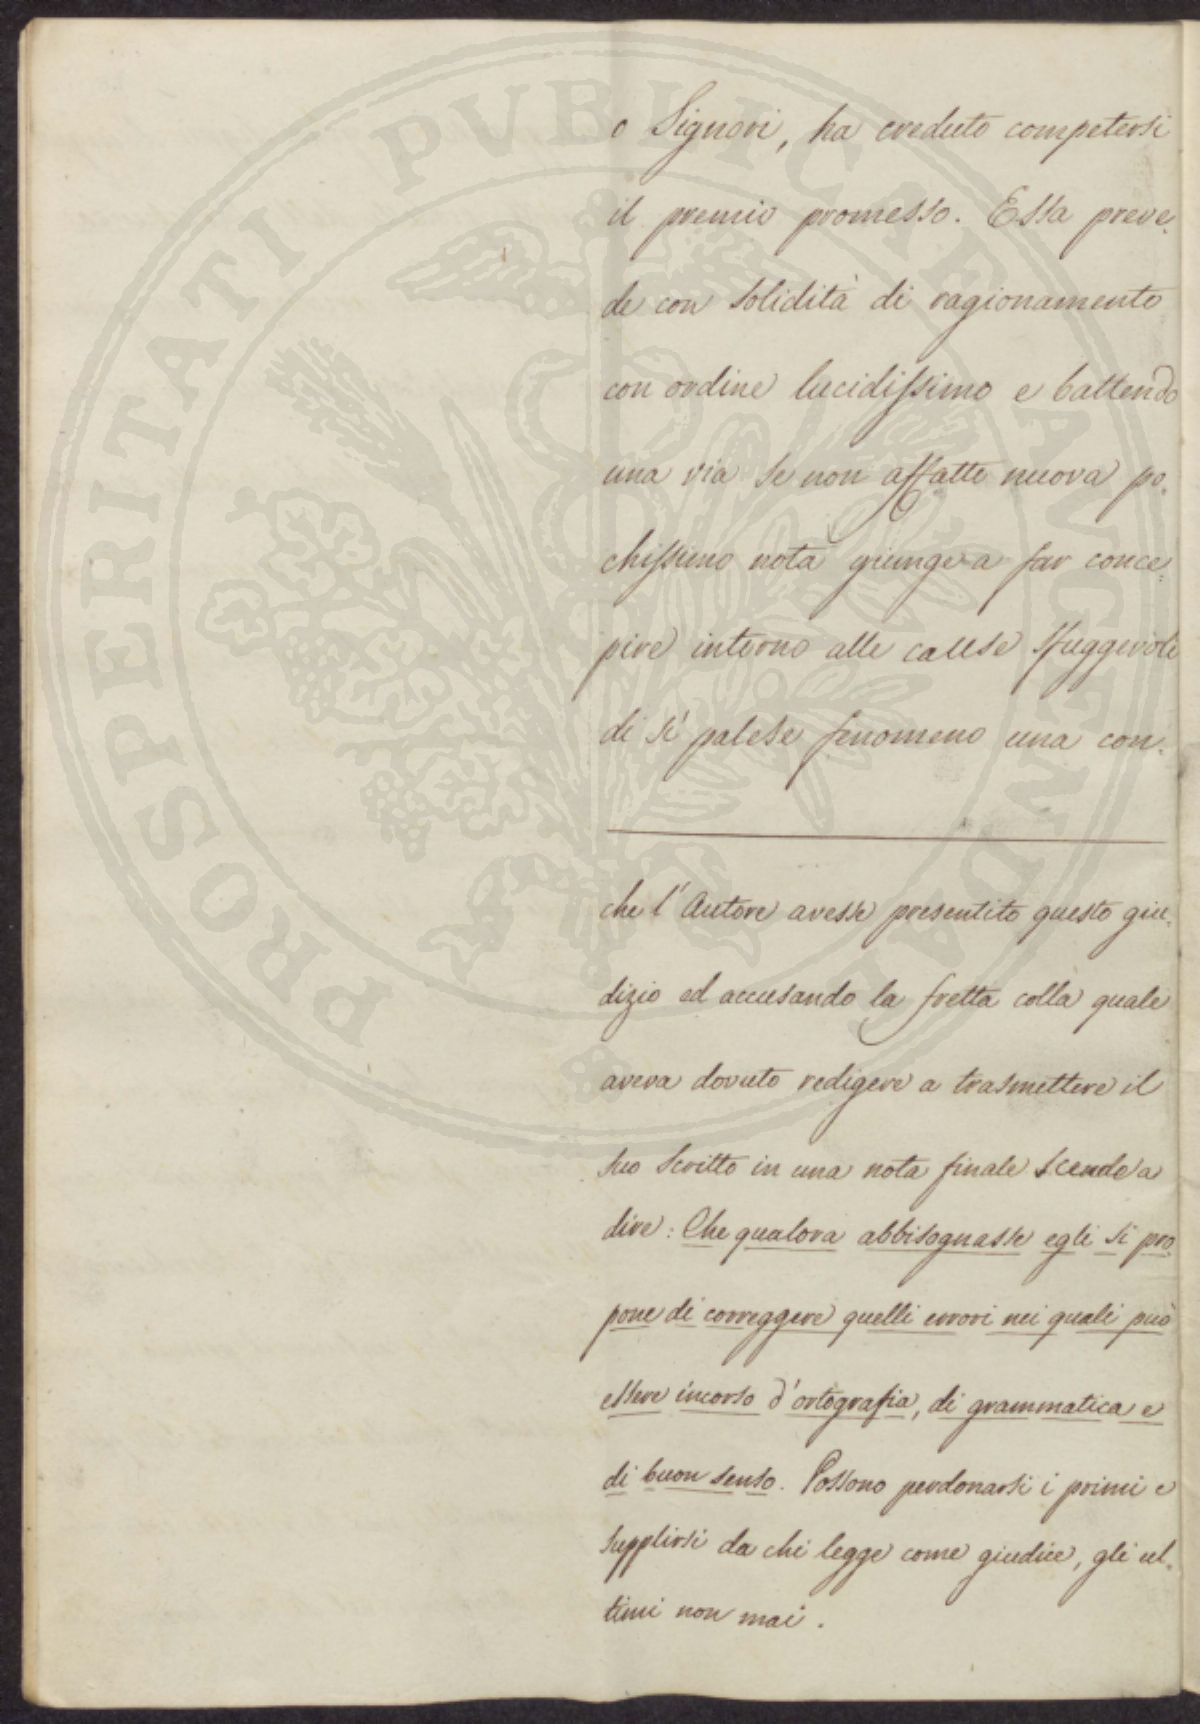 o Signori, ha creduto competersi
il premio promesso. Essa preve-
de con solidità di ragionamento
con ordine lucidissimo e battendo
una via se non affatto nuova po-
chissimo nota giunge a far conce-
pire intorno alle cause sfuggevoli
di sì palese fenomeno una con-
che l'Autore avesse presentito questo giu-
dizio ed accusando la fretta colla quale
aveva dovuto redigere a trasmettere il
suo scritto in una nota finale scende a
dire: Che qualora abbisognasse egli si pro
pone di correggere quelli errori nei quali può
essere incorso d'ortografia, di grammatica e
di buon senso. Possono perdonarsi i primi e
supplirsi da chi legge come giudice, gli ul-
timi non mai.
PROSPERITATI PUBLICAE AUGENDAE